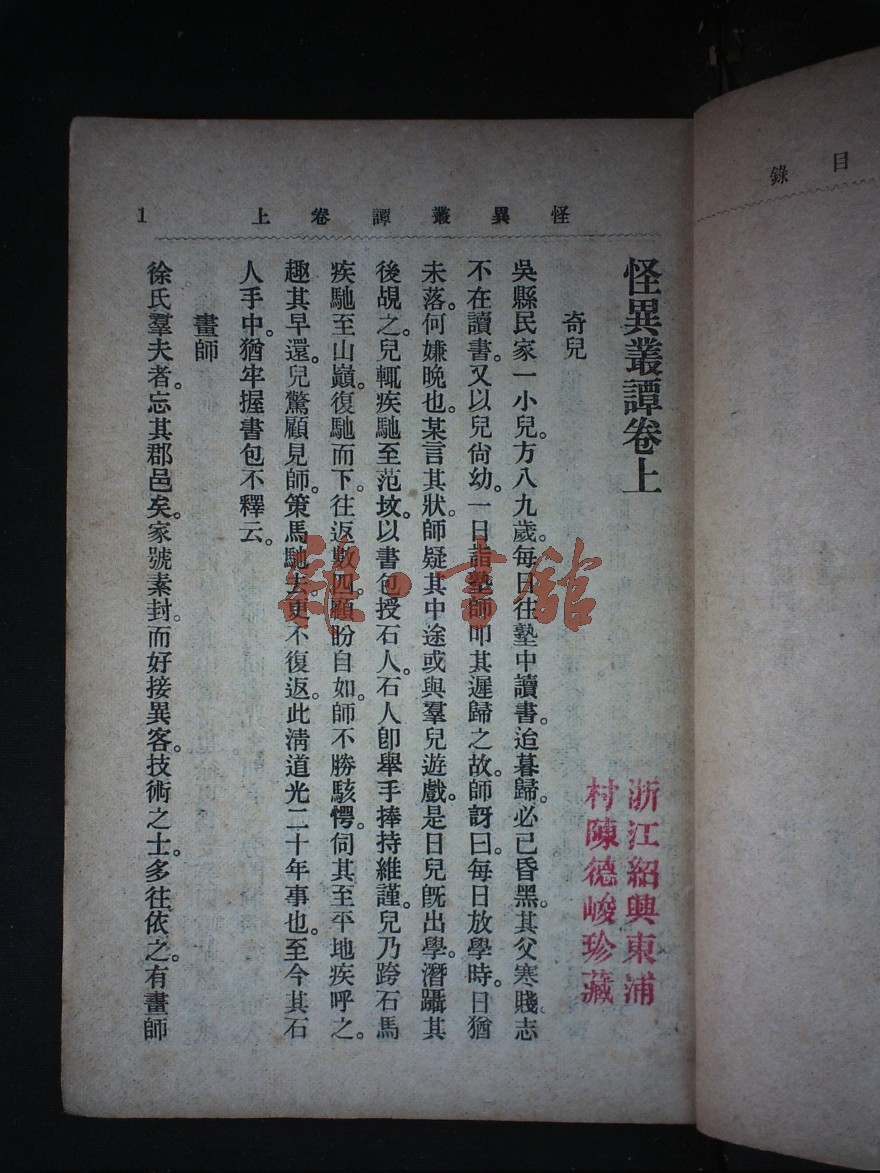 錄目
上卷譚叢異怪
1
怪異叢譚卷上
奇兒
吳縣民家一小兒。方八九歲。每日往塾中讀書。迨暮歸。必已昏黑。其父寒賤。志
不在讀書。又以兒尙幼。一日詣塾師叩其遲歸之故。師訝曰。每日放學時。日猶
未落。何嫌晚也。某言其狀。師疑其中途或與羣兒遊戲。是日兒旣出學。潛躡其
後覘之。兒輒疾馳至范坟。以書包授石人。石人卽舉手捧持維謹。兒乃跨石馬
疾馳至山巔。復馳而下。往返數四。顧盼自如。師不勝駭愕。伺其至平地疾呼之。
趣其早還。兒驚顧見師。策馬馳去。更不復返。此淸道光二十年事也。至今其石
人手中。猶牢握書包不釋云。
畫師
徐氏羣夫者。忘其郡邑矣。家號素封。而好接異客。技術之士。多往依之。有畫師
浙江紹興東浦
村陳德峻珍藏
雜·書館